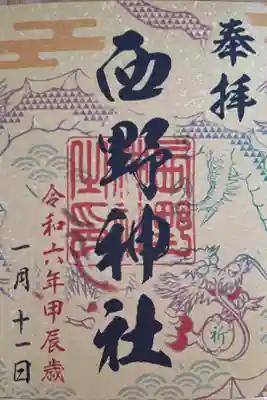 奉拝
西野神社
西野神社之印
令和六年甲辰歳
一月十一日
祈